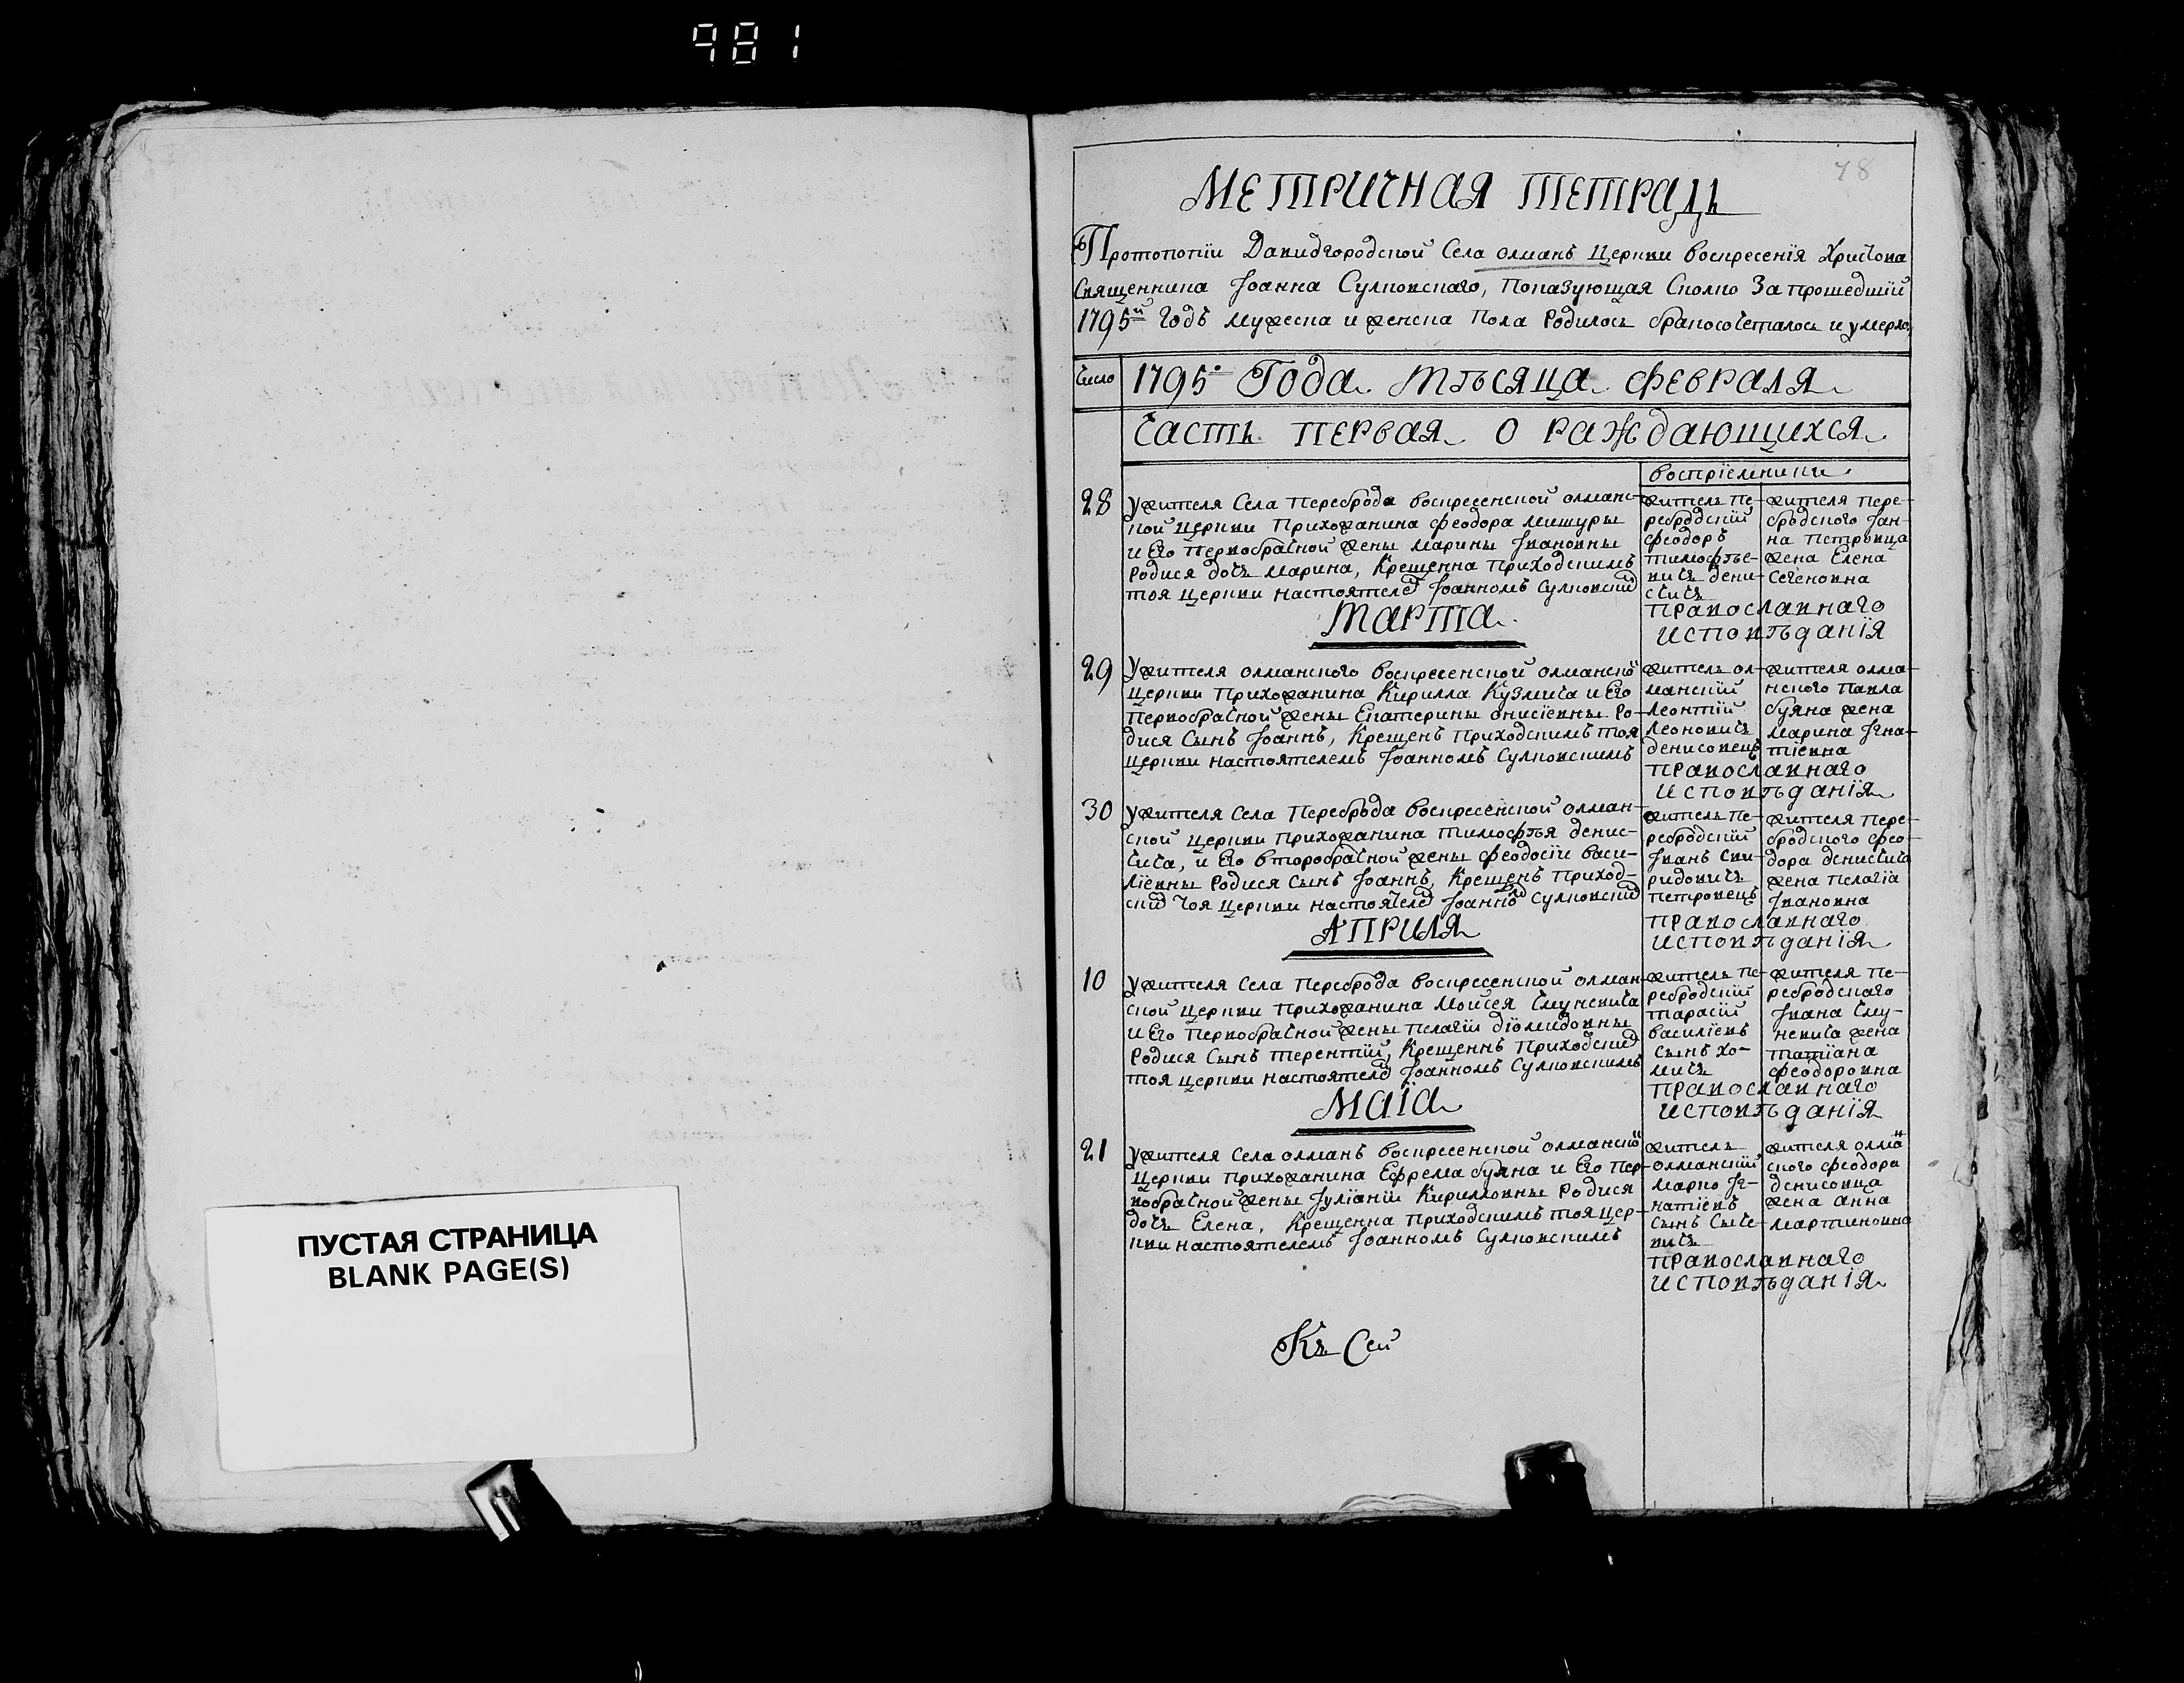 981
ПУСТАЯ СТРАНИЦА
BLANK PAGE(S)
48
МЕТРИЧНАЯ ТЕТРАДЬ
Протопопіи Давидгородской Села олманъ Церкви воскресенія Христова
Священника Іоанна Сулковскаго, Показующая Сколко За прошедшій
1795й Годъ мужеска и женска Пола Родилось бракосочеталось и умерло,
Число
1795го Года Мѣсяца февраля
Часть первая о раждающихся
воспріемники
28
У жителя Села Переброда воскресенской олманс-
кой церкви Прихожанина феодора мишуры
и Его Первобрачной жены марины Івановны
Родися дочь марина, Крещенна приходскимъ
тоя церкви настоятеле Іоанномъ Сулковски
житель пе-
ребродскій
феодоръ
тимофѣе-
вичъ дени-
счичъ
жителя пере-
бродского Іан-
на петровца
жена Елена
Сегеновна
православнаго
исповѣданія
Марта
29
У жителя олманского воскресенской олманско
церкви прихожанина Кирилла Кузмича и Его
первобрачной жены Екатерины онисіевны Ро-
дися Сынъ Іоаннъ, Крещенъ приходскимъ тоя
церкви настоятелемъ Іоанномъ Сулковскимъ
житель ол-
манскій
леонтій
леоновичъ
денисовецъ
жителя олма-
нского павла
буяна жена
маринаІгна-
тіевна
православнаго
исповѣданія
30
У жителя Села Переброда воскресенской олман-
ской церкви прихожанина тимофѣя денис-
чича, и Его второбрачной жены феодосіи васи-
ліевны Родися Сынъ Іоаннъ, Крещенъ приход-
ски тоя церкви настоятеле Іоанно Сулковски
житель пе-
ребродскій
Іванъ Спи-
ридовичъ
петровецъ
жителя пере-
бродского фео-
дора денисчича
жена пелагіа
Івановна
православнаго
исповѣданія
Априля
10
У жителя Села Переброда воскресенской олман-
ской церкви прихожанина Моисея Смуневича
и Его Первобрачной жены пелагіи діомидовны
Родися Сынъ терентій, Крещеннъ приходски
тоя церкви настоятеле Іоанномъ Сулковскимъ
житель пе-
ребродскій
тарасій
василіевъ
Сынъ хо-
мичъ
жителя пе-
ребродскаго
Ивана Сму-
невича жена
татіана
феодоровна
православнаго
исповѣданія
Маіа
21
У жителя Села олманъ воскресенской олманско
церкви прихожанина Ефрема буяна и Его пер-
вобрачной жены Іуліаніи Кирилловны Родися
дочь Елена, Крещенна приходскимъ тоя цер-
кви настоятелемъ Іоанномъ Сулковскимъ
житель
олманскій
марко Іг-
натіевъ
Сынъ Сыче-
вичъ
жителя олма
ского феодора
денисовца
жена анна
мартиновна
православнаго
исповѣданія
Къ Сей